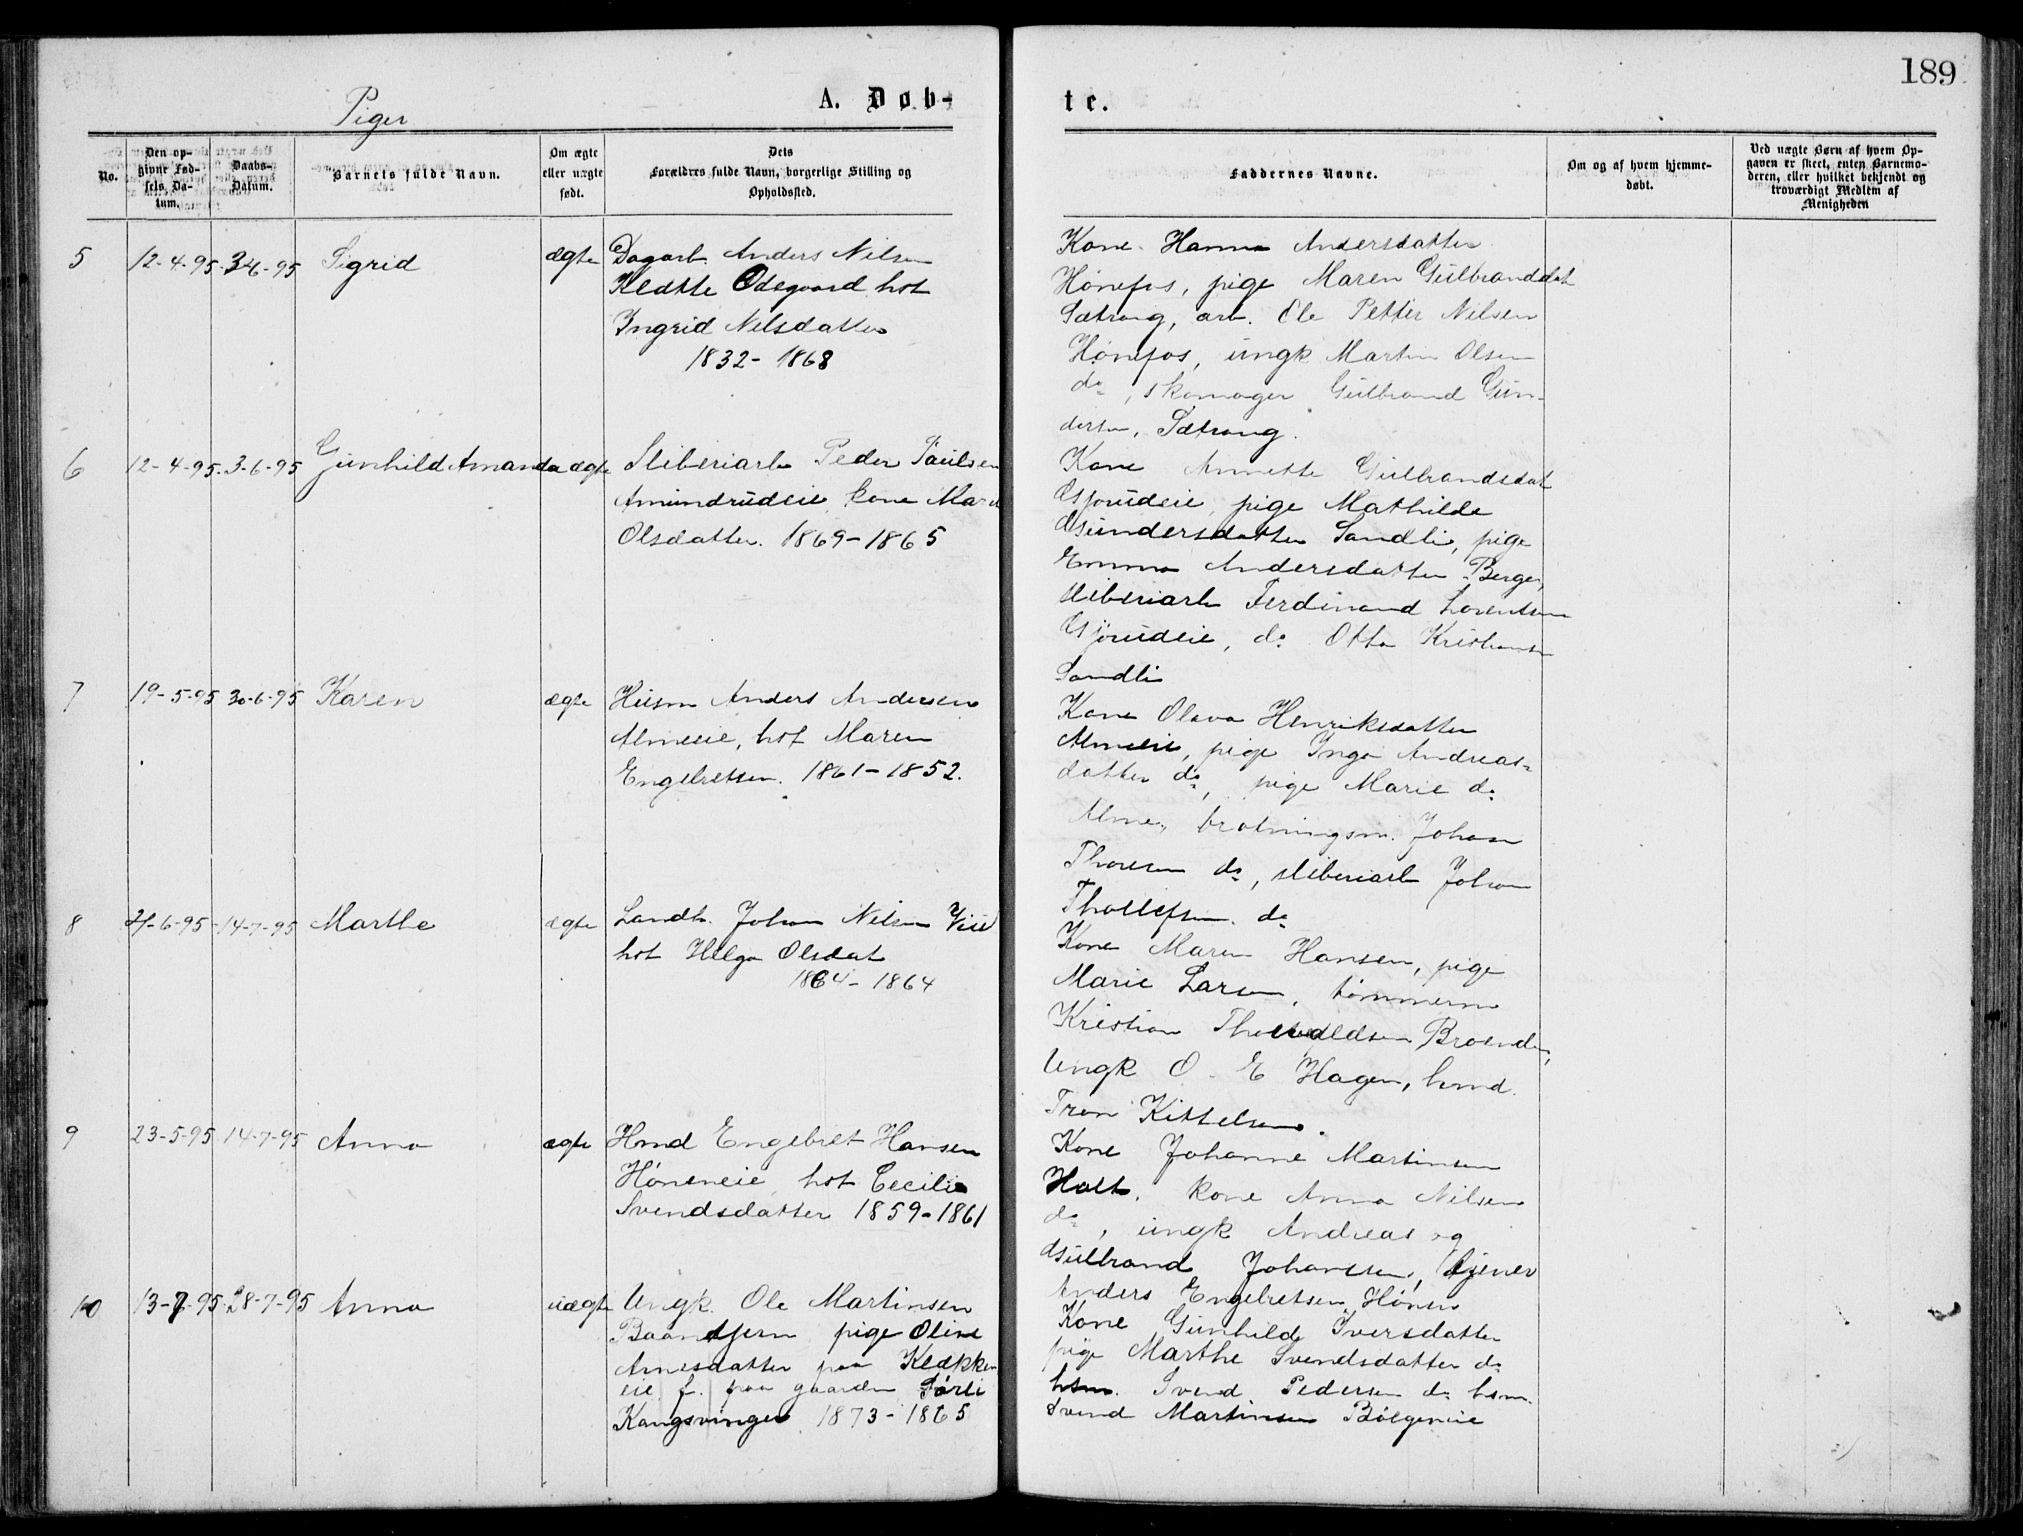 189
Piger
A. Døb-
te.
No.
Den op-
givne Fød-
sels Da-
tum.
Daabs-
Datum.
Barnets fulde Navn.
Om ægte
eller uægte
født.
Dets
Forældres fulde Navn, borgerlige Stilling og
Opholdssted.
Faddernes Navne.
Om og af hvem hjemme-
døbt.
Ved uægte Børn af hvem Op-
gaven er skeet, enten Barnemo-
deren, eller hvilket bekjendt og
troværdigt Medlem af
Menigheden
5 12-4-95 3-6-95 Sigrid ægte Dagarb. Anders Nilsen
Klækte Ødegaard, hst
Ingrid Nilsdatter
1832-1868
Kone Hanna Andersdatter
Hønefos, pige Maren Gulbrandsdat
Sætrang, arb. Ole Petter Nilsen
Hønefos, ungk Martin Olsen
do, skomager Gulbrand Gun-
dersen, Sætrang.
6 12-4-95 3-6-95 Gunhild Amanda ægte Sliberiarb Peder Paulsen
Amundrudeie, kone Mari
Olsdatter. 1869-1865
Kone Annette Gulbrandsdat
Gjørudeie, pige Mathilde
Gundersdatter Sandli, pige
Emma Andersdatter Berger,
sliberiarb Ferdinand Lorentsen
Gjørudeie, do Otto Kristiansen
Sandli
7 19-5-95 30-6-95 Karen ægte Husm Anders Andersen
Almeie, hst Maren
Engebretsen. 1861-1852.
Kone Olava Henriksdatter
Almeie, pige Inga Andreas-
datter do, pige Marie do
Alme, brotningsm. Johan
Thoresen do, sliberiarb Johan
Thollefsen do
8 4-6-95 14-7-95 Marthe ægte Landh. Johan Nilsen Viul
hst Helga Olsdat
1864-1864
Kone Maren Hansen, pige
Marie Larsen, tømmerm
Kristian Thorvaldsen Braenden,
Ungk O. E Hagen, hmd
Tron Kittelsen.
9 23-5-95 14-7-95 Anna ægte Hmd Engebret Hansen
Høneneie, hst Cecilie
Svendsdatter 1859-1861
Kone Johanne Martinsen
Holt, kone Anna Nilsen
do, ungk Andreas og
Gulbrand Johansen, tjener
Anders Engebretsen Hønen
10 13-7-95 28-7-95 Anna uægte Ungk. Ole Martinsen
Baantjern pige Oline
Arnesdatter paa Klækken
eie f. paa gaarden Sørli
Kongsvinger 1873-1865
Kone Gunhild Iversdatter
pige Marthe Svendsdatter do
hsm. Svend Pedersen do hsm.
Svend Martinsen Bølgeneie